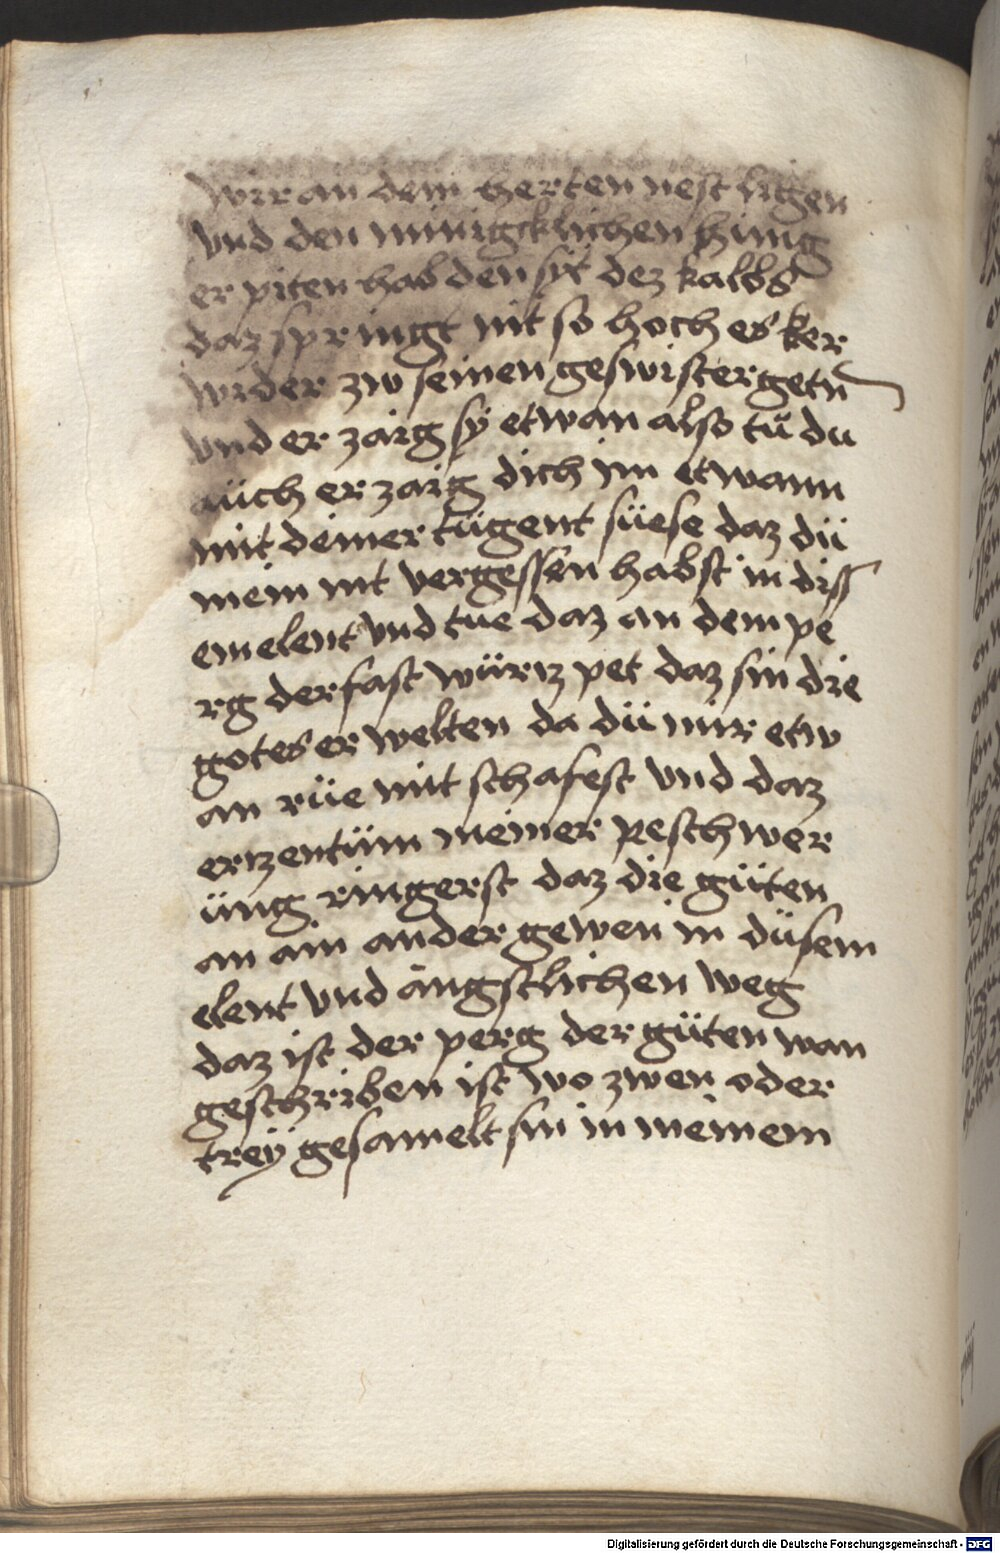 wir an dem herten nest ligen
vnd den minigcklichen hünig
er piten hab den syt dez kalbs
daz springt nit so hoch es ker
wider zw seinen geswistergetn
vnd er zaig sy etwan also tü du
aüch er zaig dich im etwann
mit deiner tügent süese daz dü
mein nit vergessen habst in diss
em elent vnd tue daz an dem pe
rg der fast würtz pet daz sin die
gotes er welten da dü mir etw
an rüe mit schafest vnd daz
ertzentüm meiner peschwer
üng ringerst daz die güten
an ain ander geweñ in düsem
elent vnd ängstlichen weg
daz ist der perg der güten wan
geschriben ist wo zwen oder
treÿ gesamelt sin in meinem
Digitalisierung gefördert durch die Deutsche Forschungsgemeinschaft - DFG